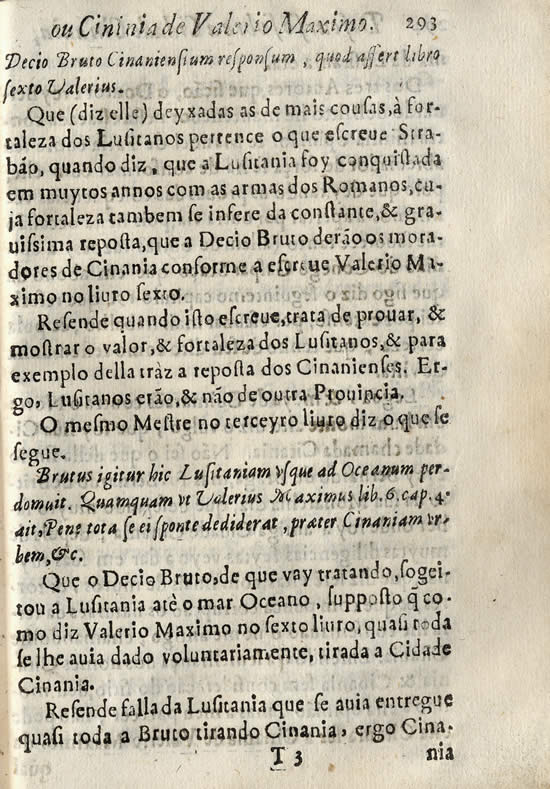 ou Cininia de Valerio Maximo. 293
Decio Bruto Cinaniensium responsum, quod affert libro
sexto Valerius.
Que (diz elle) deyxadas as de mais cousas, à for-
taleza dos Lusitanos pertence o que escreue Stra-
bão, quando diz, que a Lusitania foy conquistada
em muytos annos com as armas dos Romanos, cu-
ja fortaleza tambem se infere da constante, & gra-
uissima reposta, que a Decio Bruto derão os mora-
dores de Cinania conforme a escreue Valerio Ma-
ximo no liuro sexto.
Resende quando isto escreue, trata de prouar, &
mostrar o valor, & fortaleza dos Lusitanos, & para
exemplo della tràz a reposta dos Cinanienses. Er-
go, Lusitanos erão, & não de outra Prouincia.
O mesmo Mestre no terceyro liuro diz o que se
segue.
Brutus igitur hic Lusitaniam vsque ad Oceanum per-
domuit. Quamquam vt Valerius Maximus lib. 6. cap. 4.
ait, Pene tota se ei sponte dediderat, præter Cinaniam vr-
bem, &c.
Que o Decio Bruto, de que vay tratando, sogei-
tou a Lusitania atè o mar Oceano, supposto q̃ co-
mo diz Valerio Maximo no sexto liuro, quasi toda
se lhe auia dado voluntariamente, tirada a Cidade
Cinania.
Resende falla da Lusitania que se auia entregue
quasi toda a Bruto tirando Cinania, ergo Cina-
T 3 nia